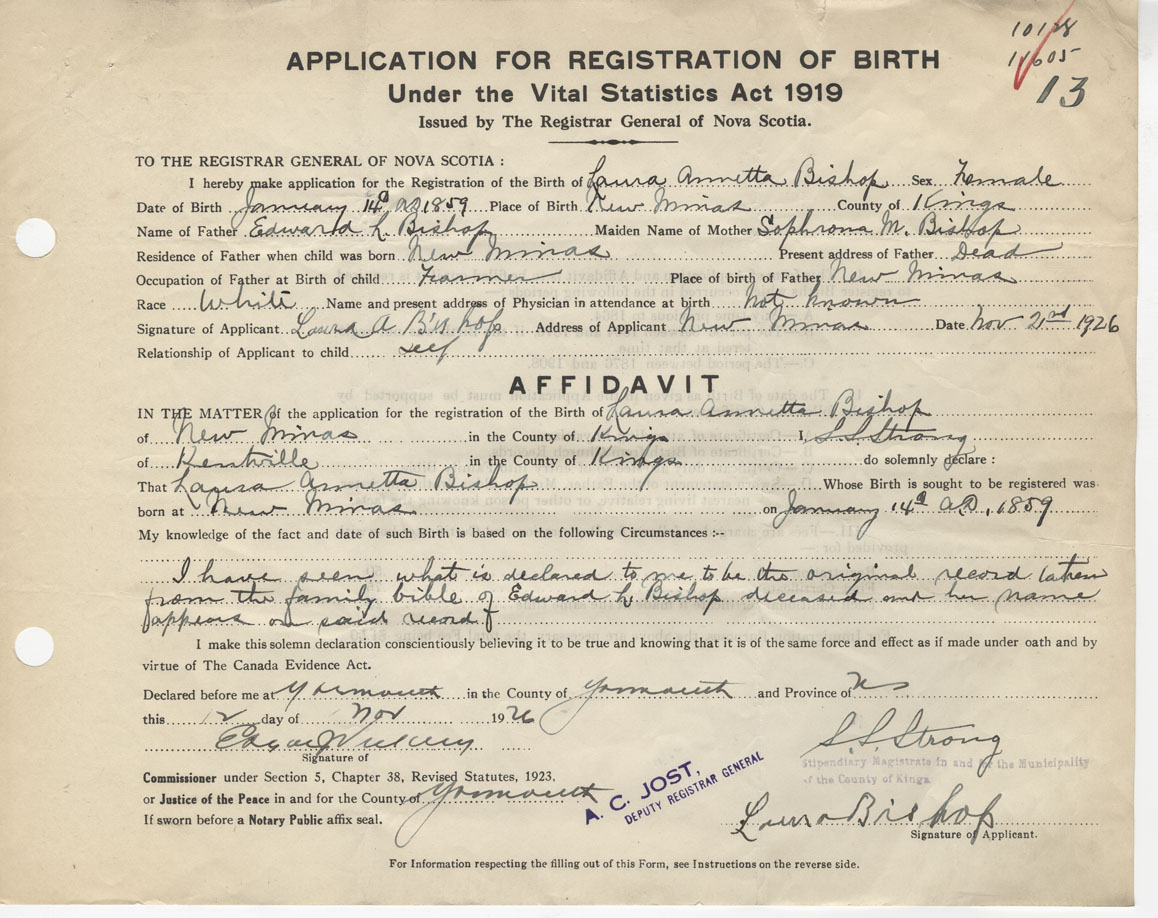 10128
11605
13
APPLICATION FOR REGISTRATION OF BIRTH
Under the Vital Statistics Act 1919
Issued by The Registrar General of Nova Scotia.
TO THE REGISTRAR GENERAL OF NOVA SCOTIA :
I hereby make application for the Registration of the Birth of Laura Annetta Bishop Sex Female
Date of Birth January 14th AD 1859 Place of Birth New Minas County of Kings
Name of Father Edward L. Bishop Maiden Name of Mother Sophrona M. Bishop
Residence of Father when child was born New Minas Present address of Father Dead
Occupation of Father at Birth of child Farmer Place of birth of Father New Minas
Race White Name and present address of Physician in attendance at birth Not known
Signature of Applicant Laura A Bishop Address of Applicant New Minas Date Nov 2nd 1926
Relationship of Applicant to child self
AFFIDAVIT
IN THE MATTER of the application for the registration of the Birth of Laura Annetta Bishop
of New Minas in the County of Kings I, S.S. Strong
of Kentville in the County of Kings do solemnly declare :
That Laura Annetta Bishop Whose Birth is sought to be registered was
born at New Minas on January 14th A.D. 1859
My knowledge of the fact and date of such Birth is based on the following Circumstances :--
I have seen what is declared to me to be the original record taken
from the family bible of Edward L. Bishop deceased and her name
appears on said record
I make this solemn declaration conscientiously believing it to be true and knowing that it is of the same force and effect as if made under oath and by
virtue of The Canada Evidence Act.
Declared before me at Yarmouth in the County of Yarmouth and Province of NS
this 12 day of Nov 1926
S.S. Strong
Signature of
Stipendiary Magistrate in and for the Municipality
of the County of Kings
Commissioner under Section 5, Chapter 38, Revised Statutes, 1923,
or Justice of the Peace in and for the County of Yarmouth
A. C. JOST,
DEPUTY REGISTRAR GENERAL
If sworn before a Notary Public affix seal.
Laura Bishop
Signature of Applicant.
For Information respecting the filling out of this Form, see Instructions on the reverse side.